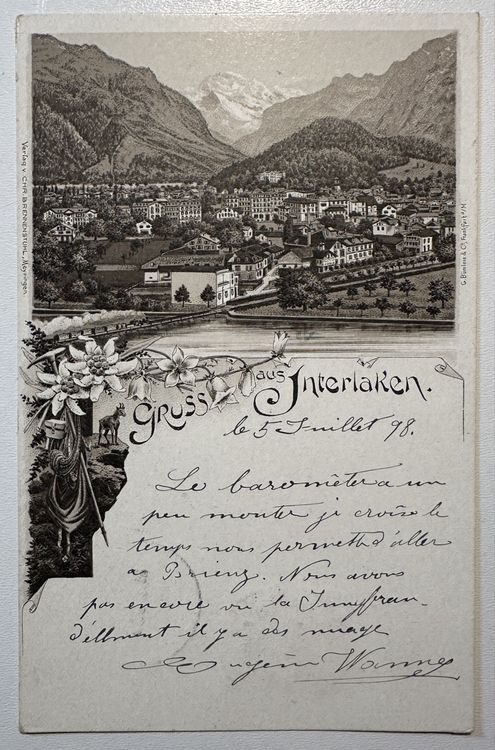 Verlag v. CHR. BRENNENSTUHL, Meyringen
Gruss aus Interlaken.
le 5 Juillet 98.
Le baromètre a un
peu monter je croise le
temps nous permettd d'aller
a Brienz. Nous avons
pas encore vu la Jungfrau
d'ellment il y a des nuage
Eugénie